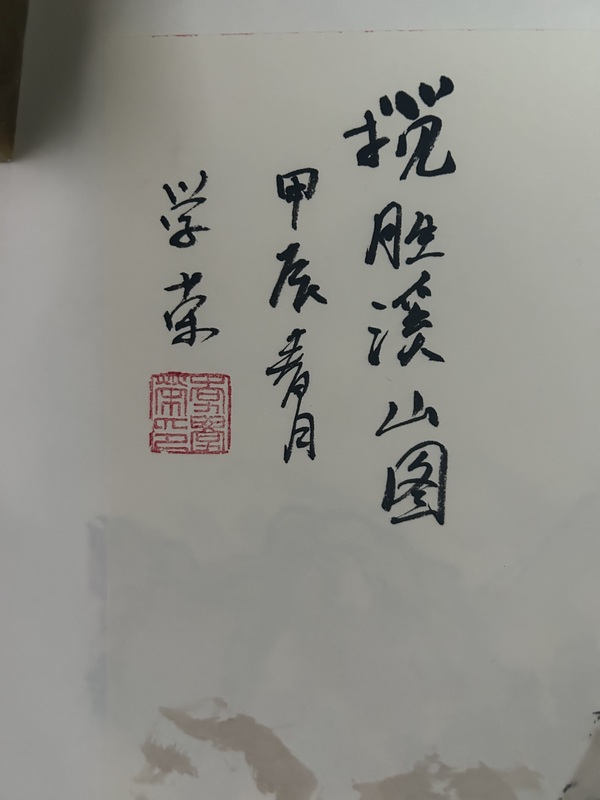 揽胜溪山图
甲辰春月
学荣